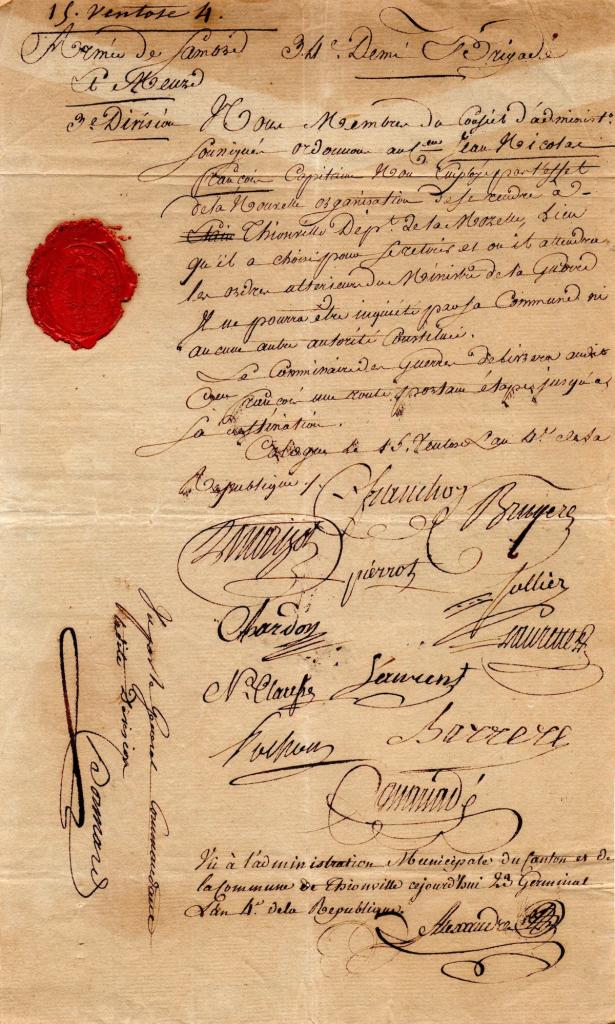 15. Ventose 4.
Armée de Sambre 34e. Demi Brigade
Et Meuse
3e Division Nous Membres du Conseil d'administon.
soussignés ordonnons au Cen. Jean Nicolas
François Capitaine Non Employé par l'effet
de la Nouvelle organisation de se rendre a
Thionville Dépt. de la Mozelle, Lieu
qu'il a choisi pour sa retraite et ou il attendra
les ordres ulterieurs du Ministre de la Guerre
Il ne pourra être inquiété par sa Commune ni
aucune autre autorité Constituée.
Le Commissaire des Guerres delivrera audit
Cyen François une route portant étape jusqu'a
sa destination.
Le 15. Ventose L'an 4e. de la
Republique /.
Bruyere
pierrot
Collier
Chardon
Laurette
Ns. Claude Laurent
Barrere
Vu par le General Commandant
ladite Division
Bonnard
Vu à l'administration Municipale du Canton et de
la Commune de Thionville cejourd'hui 23 Germinal
L'an 4e. de la Republique.
Alexandre